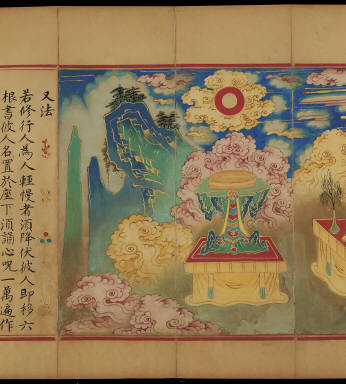 又法
若修行人為人輕慢者須降伏彼人即移六
根書彼人名置於座下須誦心呪一萬遍作